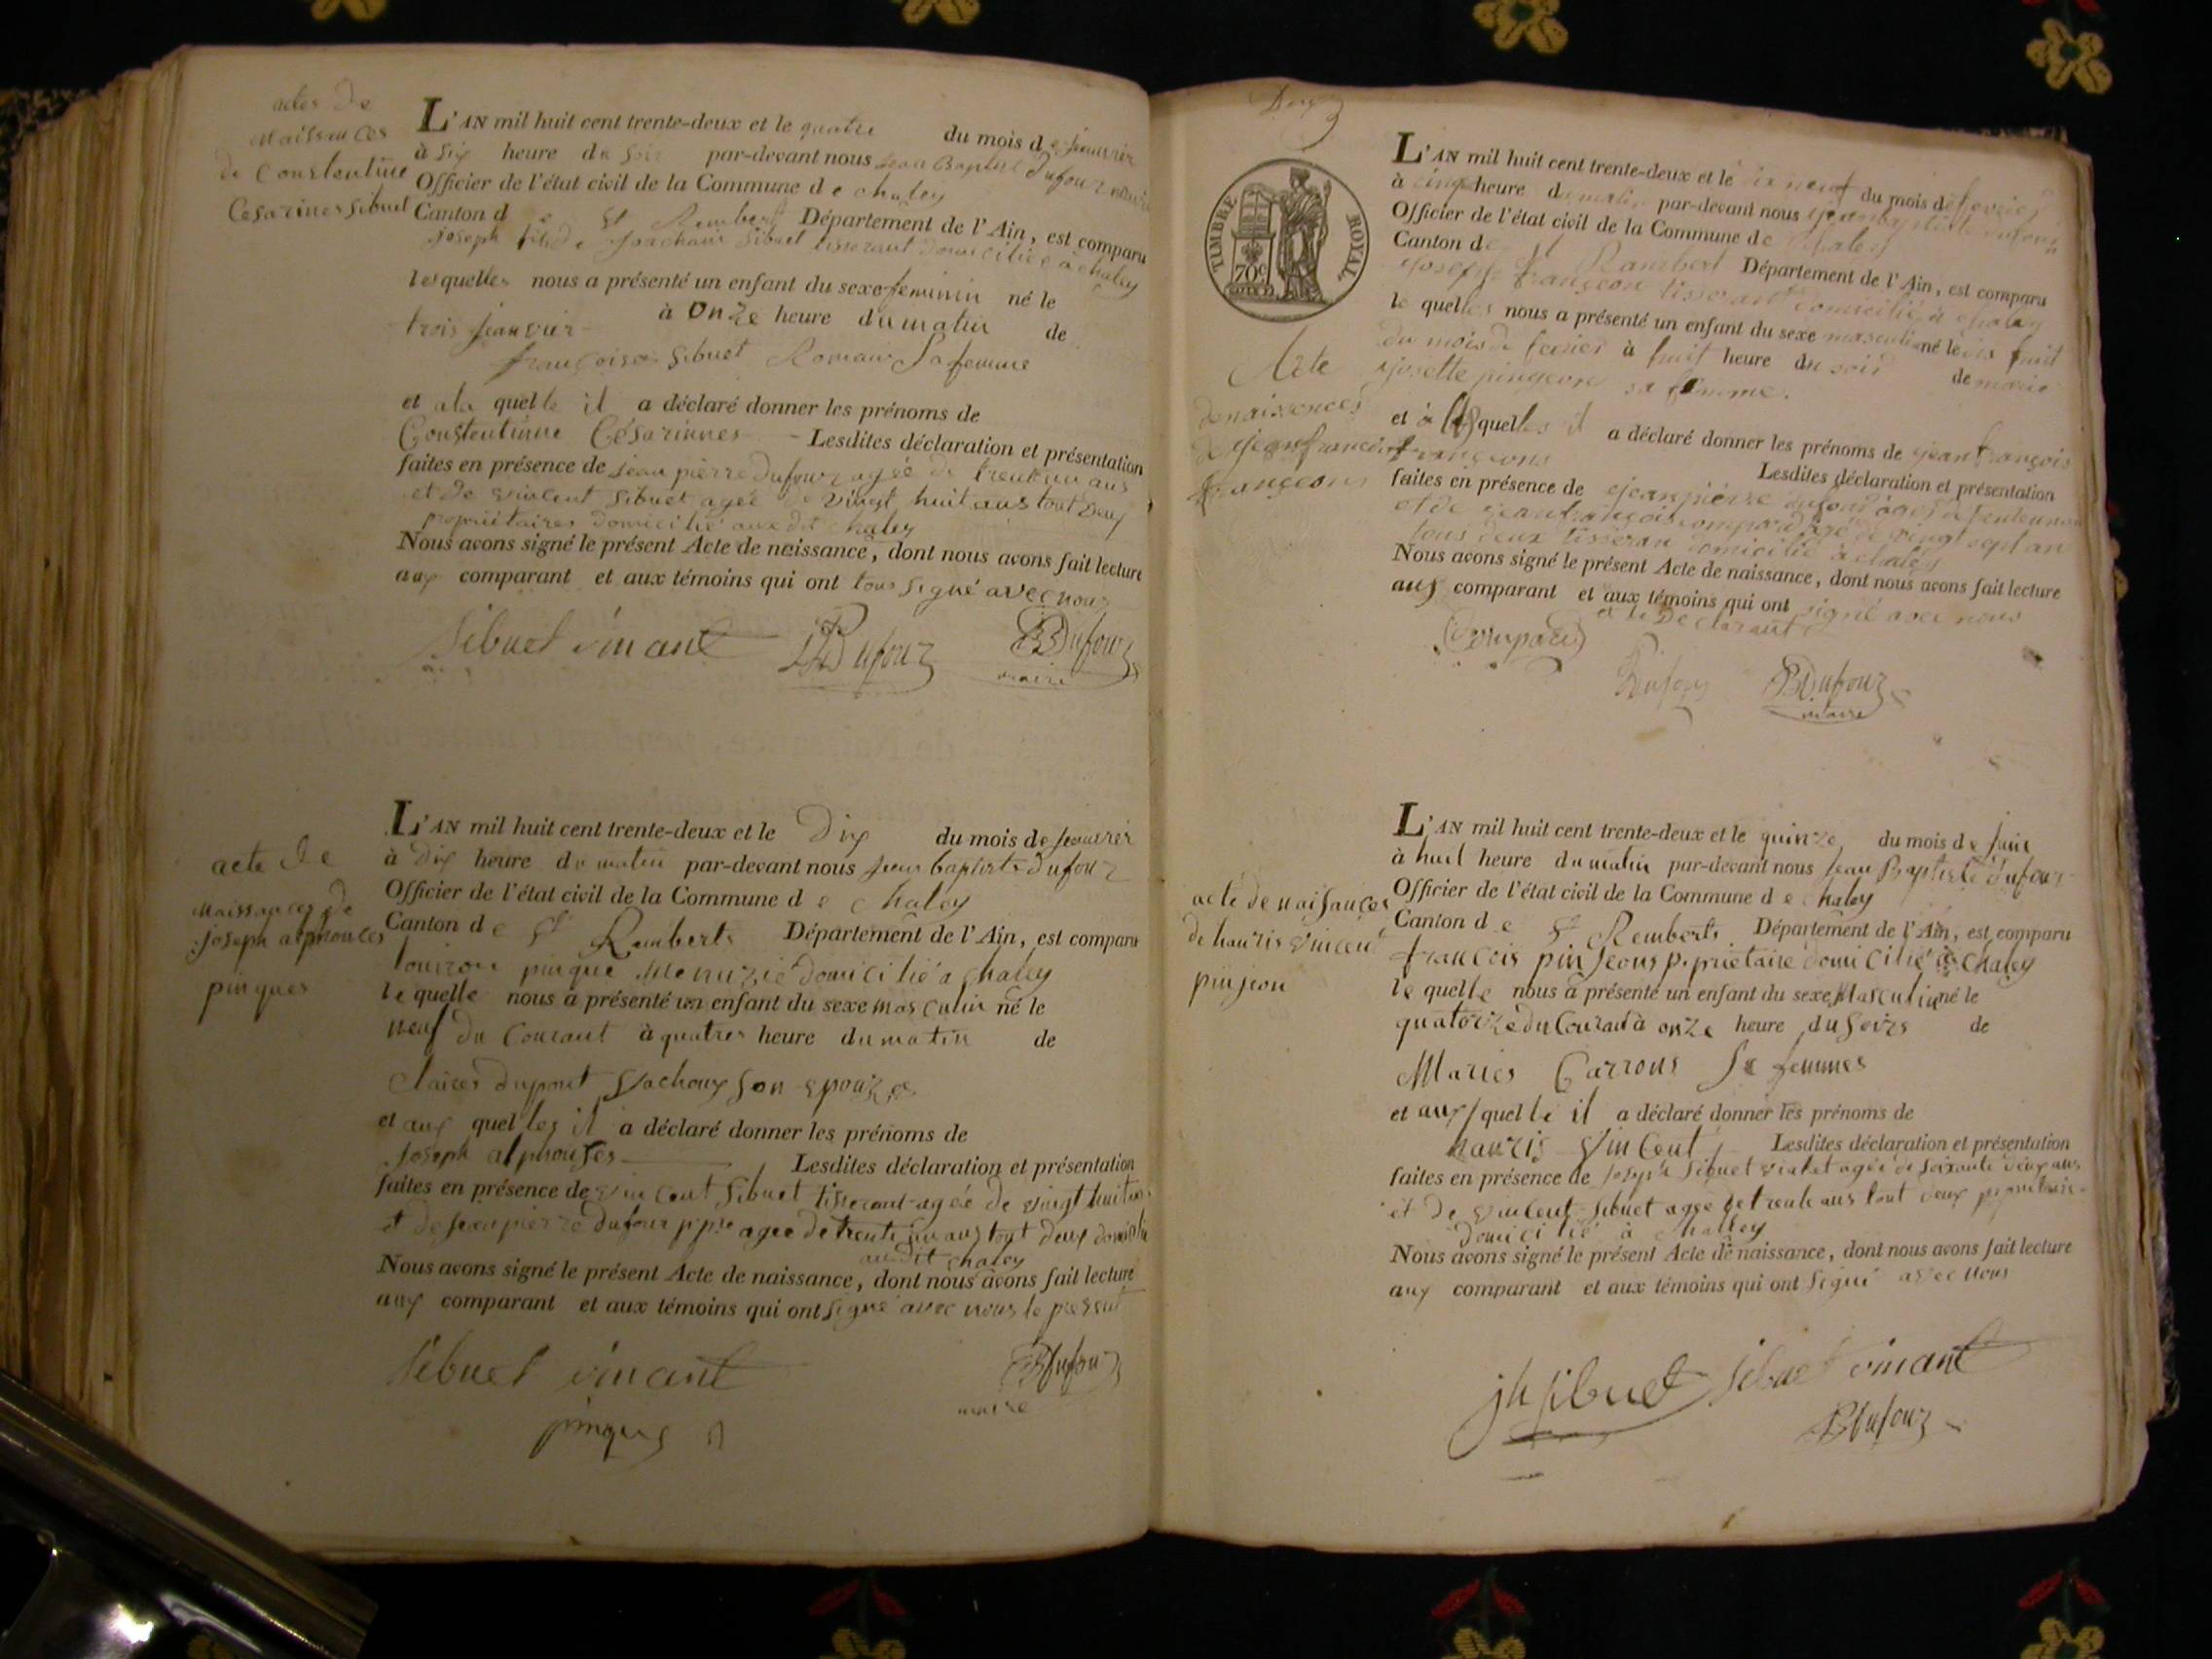 actes de
Naissances
de Constentine
Cesarinnes Sibuet
L'AN mil huit cent trente-deux et le quatre du mois de jeanvier
à six heure du soir par-devant nous jean Baptiste Dufour maire
Officier de l'état civil de la Commune de chaley
Canton de St Rembert Département de l'Ain, est comparu
joseph fils de joachain Sibuet tisserant domiciliée à chaley
lesquelles nous a présenté un enfant du sexe feminin né le
trois jeanvier à Onze heure du matin de
françoise Sibuet Romain Sa femme
et ala quelle il a déclaré donner les prénoms de
Constentinne Césarinnes Lesdites déclaration et présentation
faites en présence de jean pierre Dufour agée de trente un ans
et de vincent Sibuet agée de vingt huit ans tout Deux
propriétaires domicilié aux dit chaley
Nous avons signé le présent Acte de naissance, dont nous avons fait lecture
aux comparant et aux témoins qui ont tous signé avec nous
Sibuet vinant JPDufour JBDufour
maire
acte de
Naissances de
joseph alphonces
pinques
L'AN mil huit cent trente-deux et le Dix du mois de jeanvier
à Dix heure du matin par-devant nous jean baptiste Dufour
Officier de l'état civil de la Commune de chaley
Canton de St Remberts Département de l'Ain, est comparu
pinque Menuzié domicilié a chaley
le quelle nous a présenté un enfant du sexe masculin né le
neuf du Courant à quatres heure du matin de
Claires dupont Vachoux son epouzes
et aux quelles il a déclaré donner les prénoms de
joseph alphonses Lesdites déclaration et présentation
faites en présence de vincent Sibuet tisserant agée de vingt huit ans
et de jean pierre Dufour ppre agée de trente un ans tout deux domicilié
audit chaley
Nous avons signé le présent Acte de naissance, dont nous avons fait lecture
aux comparant et aux témoins qui ont signé avec nous le present
Sibuet vinant JBDufour
maire
pinques
TIMBRE ROYAL
70c
Acte
de naissences
de jean francois
françeons
L'AN mil huit cent trente-deux et le dix neuf du mois de fevrier
à cinq heure du matin par-devant nous jean baptiste dufour
Officier de l'état civil de la Commune de chaley
Canton de St Rambert Département de l'Ain, est comparu
joseph françeon tisserant domicilié à chaley
le quelles nous a présenté un enfant du sexe masculin né le dix huit
du mois de fevrier à huit heure du soir de marie
josette pingeon sa femme.
et à quelles il a déclaré donner les prénoms de jean françois
françeons Lesdites déclaration et présentation
faites en présence de jean pierre dufour agés de trente un an
et de jean françois compard agé de vingt sept an
tous deux tisseran domicilié à chaley
Nous avons signé le présent Acte de naissance, dont nous avons fait lecture
aux comparant et aux témoins qui ont signé avec nous
et le Declarant
Compard
Dufour JBDufour
maire
acte de naisances
de hauris vincent
pinjeon
L'AN mil huit cent trente-deux et le quinze du mois de juin
à huit heure du matin par-devant nous jean Baptiste Dufour
Officier de l'état civil de la Commune de chaley
Canton de St Remberts Département de l'Ain, est comparu
francois pinjeons propriétaire domicilié à Chaley
le quelle nous a présenté un enfant du sexe Masculin né le
quatorze du Courant à onze heure du soirs de
Maries Carrons Sa femmes
et aux quelle il a déclaré donner les prénoms de
hauris Vincent Lesdites déclaration et présentation
faites en présence de joseph Sibuet agée de soixante deux ans
et de vincent Sibuet agée de trente ans tout deux propriétaire
domicilié à Challey
Nous avons signé le présent Acte de naissance, dont nous avons fait lecture
aux comparant et aux témoins qui ont signé avec nous
jh sibuet Sibuet vinant
JBDufour